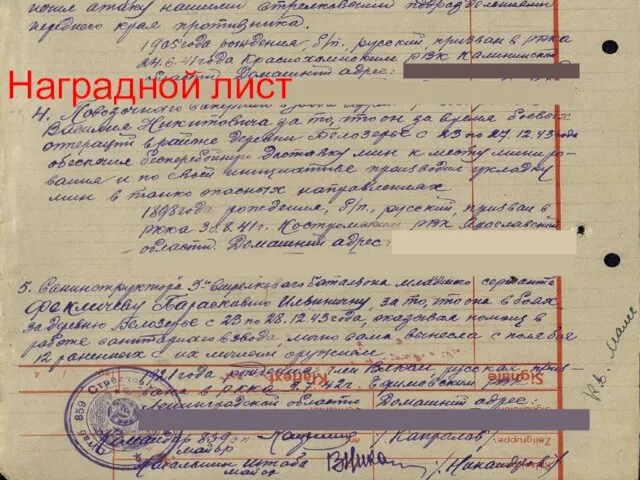 пошел атаку нашими стрелковыми подразделениями
переднего края противника.
1905 года рождения, б/п, русский, призван в РККА
24.6.41 года Краснохолмским РВК Калининской
области. Домашний адрес:
Наградной лист
4. Повозочного саперного взвода
Василия Никитовича за то, что он за время боевых
операций в районе деревни Белозерье с 23 по 27.12.43 года
обеспечил бесперебойную доставку мин к месту миниро-
вания и по своей инициативе производил укладку
мин в танко опасных направлениях
1898 года рождения, б/п, русский, призван в
РККА 30.8.41 г. Костромским РВК Ярославской
области. Домашний адрес:
5. Санинструктора 3го Стрелкового батальона младшего сержанта
Параскавию Ильиничну, за то, что она в боях
за деревню Белозерье с 23 по 28.12.43 года, оказывая помощь в
работе санитарного взвода, лично сама вынесла с поля боя
12 раненых с их личным оружием.
1921 года рождения, член ВЛКСМ, русская, приз-
вана в РККА 4.42 г. Ефимовским РВК
Ленинградской области Домашний адрес:
Klartext
Signale
Zeitgruppe
Штаб 859 Стрелково
Командир 859 сп
майор /Капралов/
Начальник штаба
майор /Никандров/
Кв. Маше